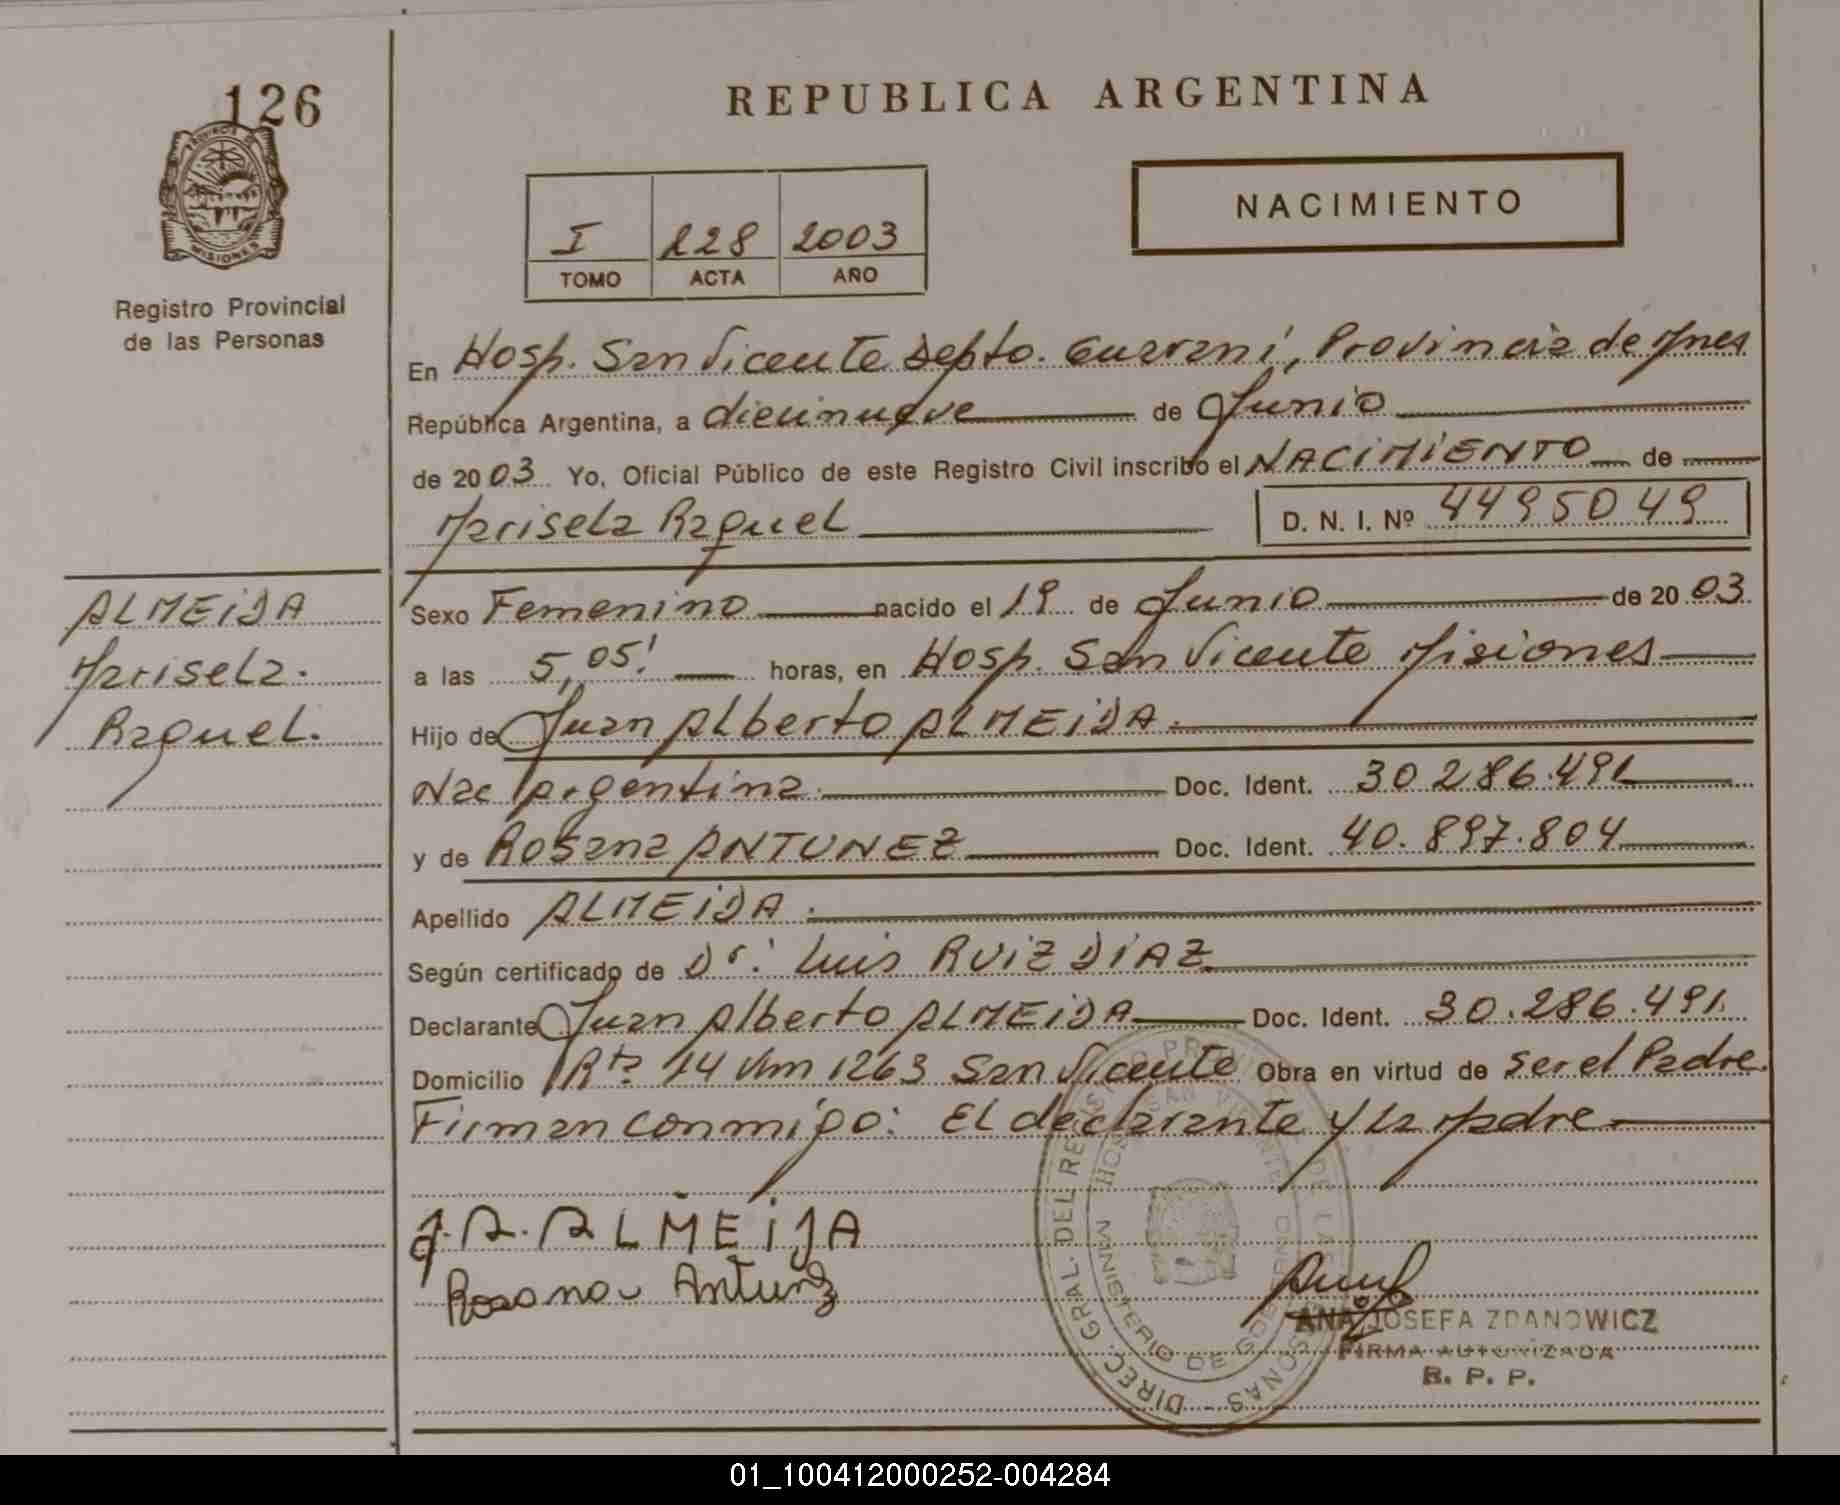 126
REPUBLICA ARGENTINA
PROVINCIA DE
MISIONES
NACIMIENTO
I 228 2003
TOMO ACTA AÑO
Registro Provincial
de las Personas
En Hosp. San Vicente Depto. Guaraní, Provincia de Mnes
República Argentina, a diecinueve de Junio
de 2003 Yo, Oficial Público de este Registro Civil inscribo el NACIMIENTO de
Marisela Raquel D. N. I. Nº 44950 49
ALMEIDA
Marisela.
Raquel.
Sexo Femenino nacido el 19 de Junio de 2003
a las 5,05' horas, en Hosp. San Vicente Misiones
Hijo de Juan Alberto ALMEIDA.
Nac Argentina. Doc. Ident. 30 286.491
y de Rosana ANTUNEZ Doc. Ident. 40.897.804
Apellido ALMEIDA.
Según certificado de Dr. Luis RUIZ DIAZ
Declarante Juan Alberto ALMEIDA Doc. Ident. 30.286.491.
Domicilio Rta 14 Km 1263 San Vicente Obra en virtud de ser el Padre.
Firman conmigo: El declarante y la Madre
J.A. ALMEIDA
Rosana Antunz
DIREC. GRAL. DEL REGISTRO PROVINCIAL DE LAS PERSONAS
MINISTERIO DE GOBIERNO
HOSP. SAN VICENTE
ANA JOSEFA ZDANOWICZ
FIRMA AUTORIZADA
R. P. P.
01_100412000252-004284